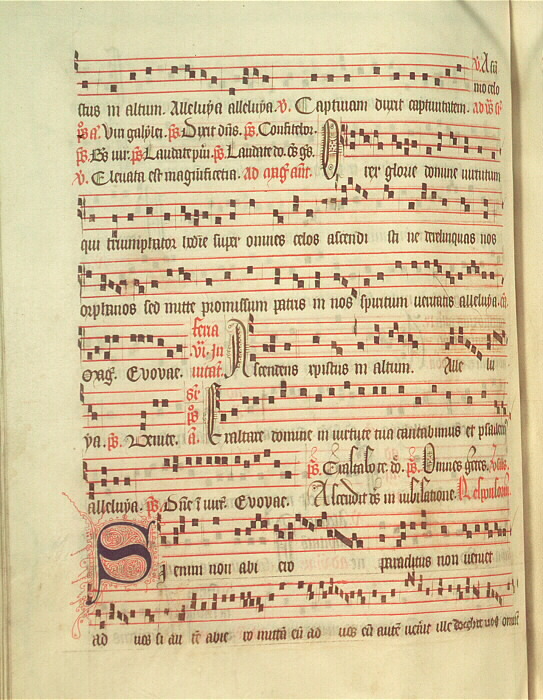 v. Ascen
mo celo
stus in altum. Alleluya alleluya. v. Captivam duxit captivitatem. ad
ps a. Viri galylei. ps. Dixit dns. ps. Confitebor.
ps. Bts vir. ps. Laudate pu. ps. Laudate do. O
v. Elevata est magnificetia. ad ant. rex glorie domine virtutum
qui triumphator hodie super omnes celos ascendi sti ne derelinquas nos
orphanos sed mitte promissum patris in nos spiritum veritatis alleluya.
Mag. Evovae. feria
vi. In A
vitat. scendens xpistus in altum. Alle lu
ya. ps. Venite. E xaltare domine in virtute tua cantabimus et psallem
alleluya. ps. Dne i virt. Evovae. ps. Exaltabo te. do. ps. Omnes getes.
Ascendit ds in iubilatione. Responsorium
S i enim non abi ero paraclitus non veniet
ad vos si au te abie ro mitta eu ad vos cu aute venit ille